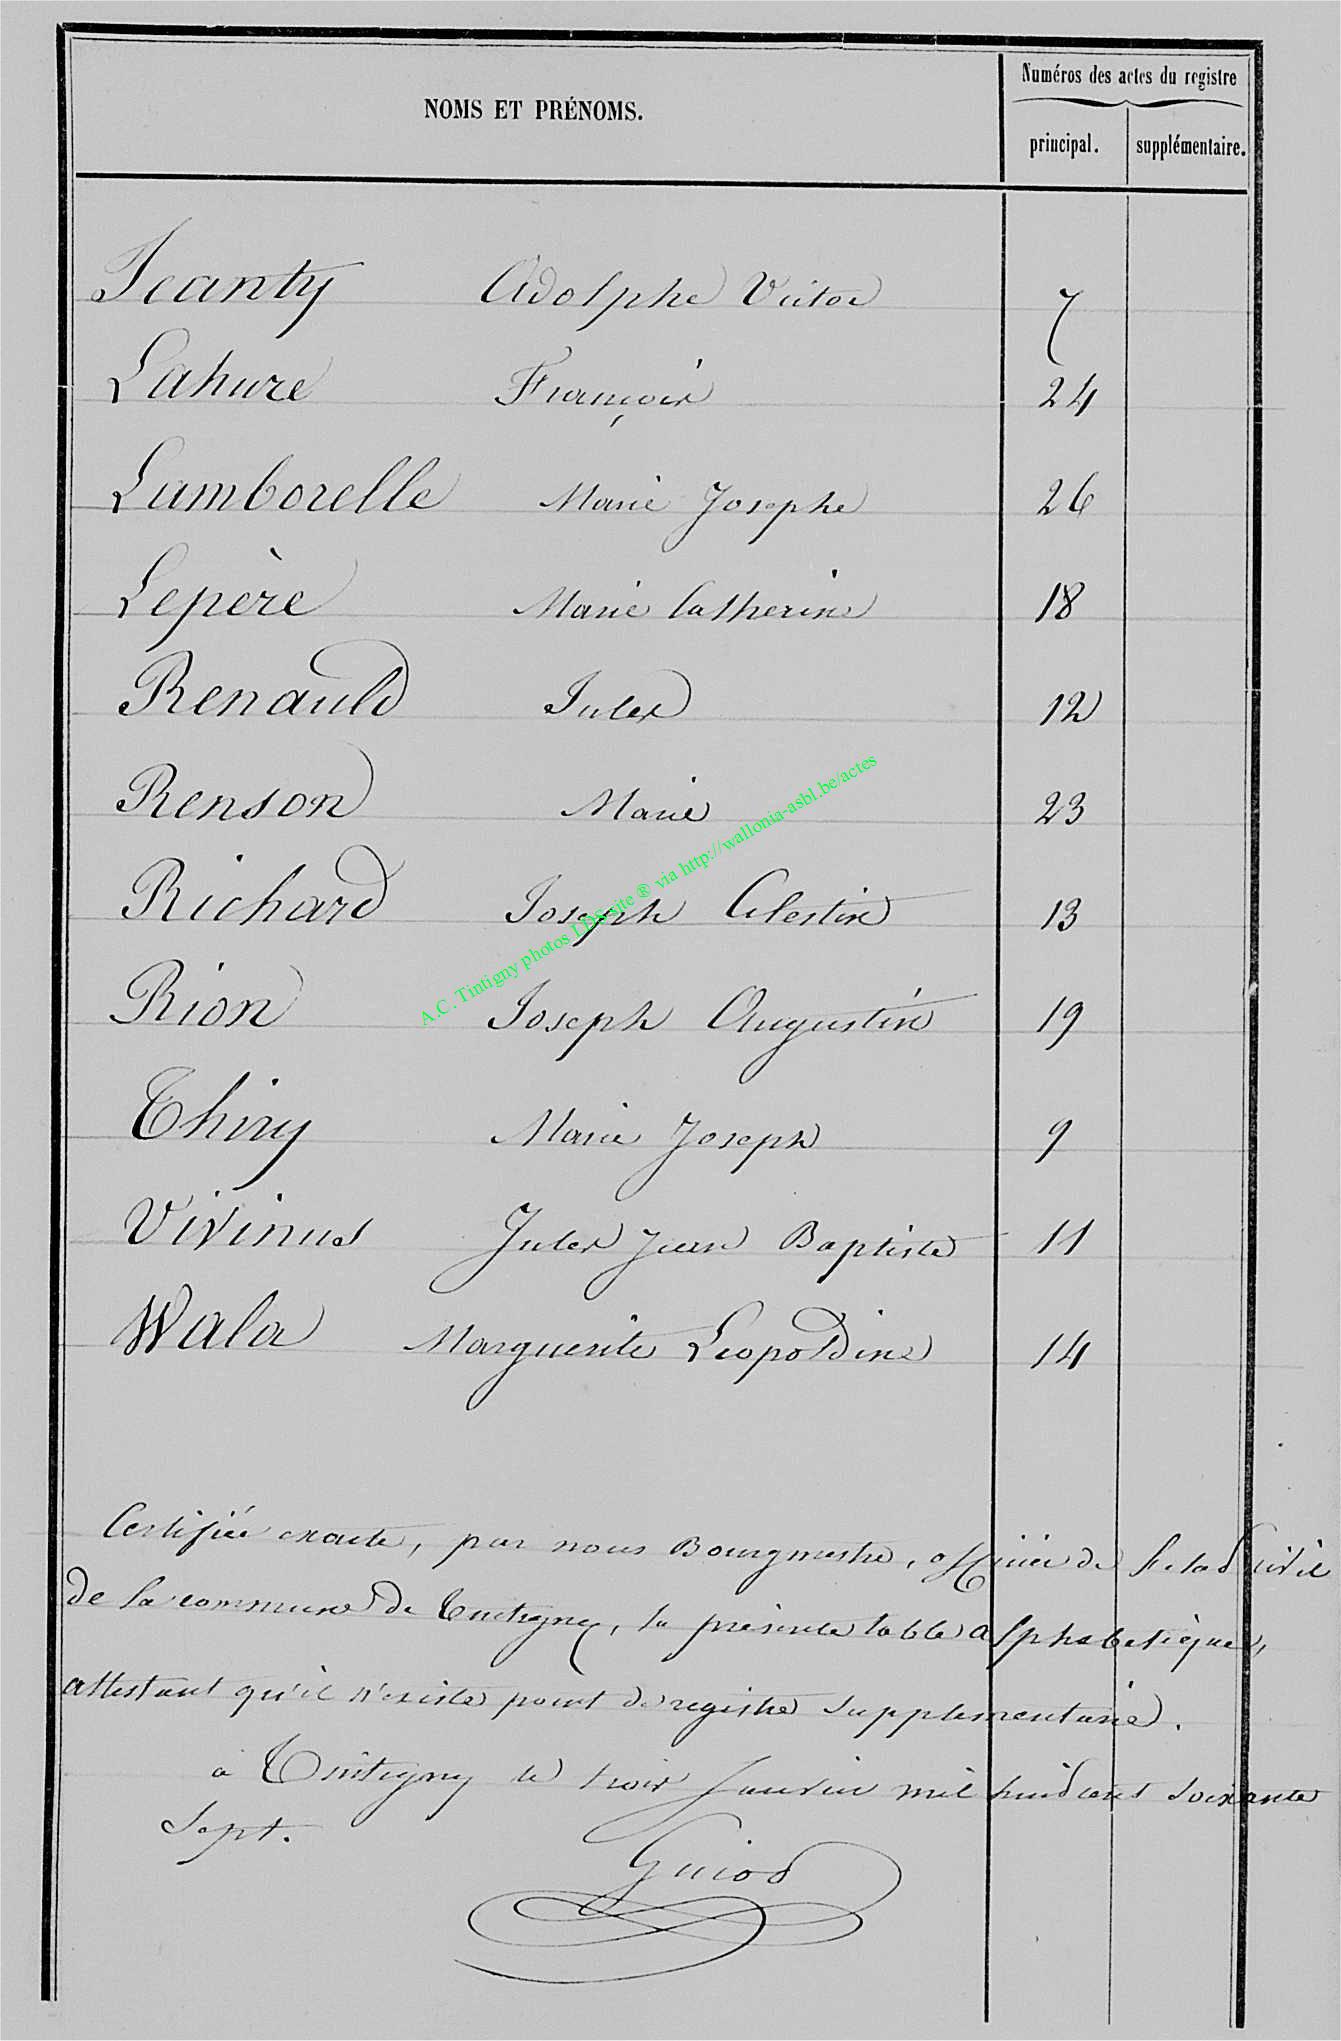 Numéros des actes du registre
NOMS ET PRÉNOMS.
principal. supplémentaire.
Jeanty Adolphe Victor 7
Lahure François 24
Lamborelle Marie Josephe 26
Lepère Marie Catherine 18
Renauld Jules 12
Renson Marie 23
Richard Joseph Célestin 13
Rion Joseph Augustin 19
Thiry Marie Joseph 9
Vivinus Jules Jean Baptiste 11
Wala Marguerite Leopoldine 14
A.C. Tintigny photos LDS-site ® via http://wallonia-asbl.be/actes
Certifiée exacte, par nous Bourgmestre, officier de l'etat Civil
de la commune de Tintigny, la présente table alphabetique,
attestant qu'il n'existe point de registre supplementaire.
à Tintigny le trois Janvier mil huit cent soixante
sept.
Guiod